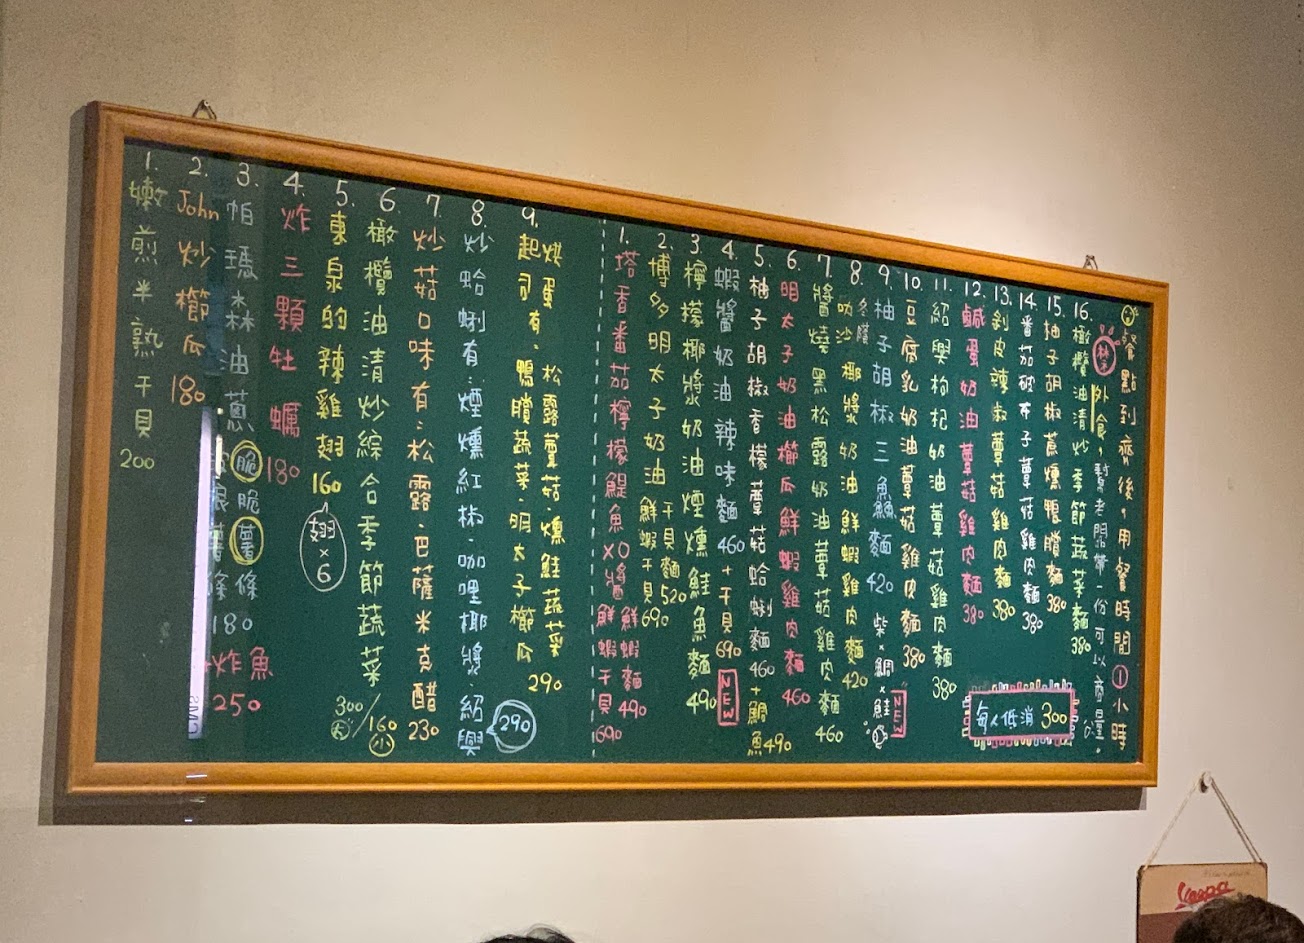 1. 嫩煎半熟干貝 200
2. John 炒櫛瓜 180
3. 帕瑪森油蔥
脆脆薯條 180
炸魚 250
4. 炸三顆牡蠣 180
5. 東泉的辣雞翅 160
翅×6
6. 橄欖油清炒綜合季節蔬菜
300 大 / 160 小
7. 炒菇口味有:松露.巴薩米克醋 230
8. 炒蛤蜊有:煙燻紅椒.咖哩椰漿.紹興 290
9. 烘蛋有:松露蕈菇.燻鮭蔬菜
起司.鴨賸蔬菜.明太子櫛瓜 290
1. 塔香番茄檸檬鯷魚XO醬
鮮蝦麵 490
鮮蝦干貝 690
2. 博多明太子奶油
干貝麵 520
鮮蝦干貝 690
3. 檸檬椰漿奶油煙燻鮭魚麵 490
4. 蝦醬奶油辣味麵 460 + 干貝 690 NEW
5. 柚子胡椒香檬蕈菇蛤蜊麵 460 + 鯛魚 490
6. 明太子奶油櫛瓜鮮蝦雞肉麵 460
7. 醬燒黑松露奶油蕈菇雞肉麵 460
8. 叻沙椰漿奶油鮮蝦雞肉麵 420
9. 冬蔭
柚子胡椒三魚麵 420 柴×鯛×鮭 NEW
10. 豆腐乳奶油蕈菇雞肉麵 380
11. 紹興枸杞奶油蕈菇雞肉麵 380
12. 鹹蛋奶油蕈菇雞肉麵 380
13. 剝皮辣椒蕈菇雞肉麵 380
14. 番茄破布子蕈菇雞肉麵 380
15. 柚子胡椒蔥燻鴨賸麵 380
16. 橄欖油清炒季節蔬菜麵 380
每人低消 300
餐點到齊後,用餐時間①小時
禁外食,幫老闆帶一份可以商量。
Vespa